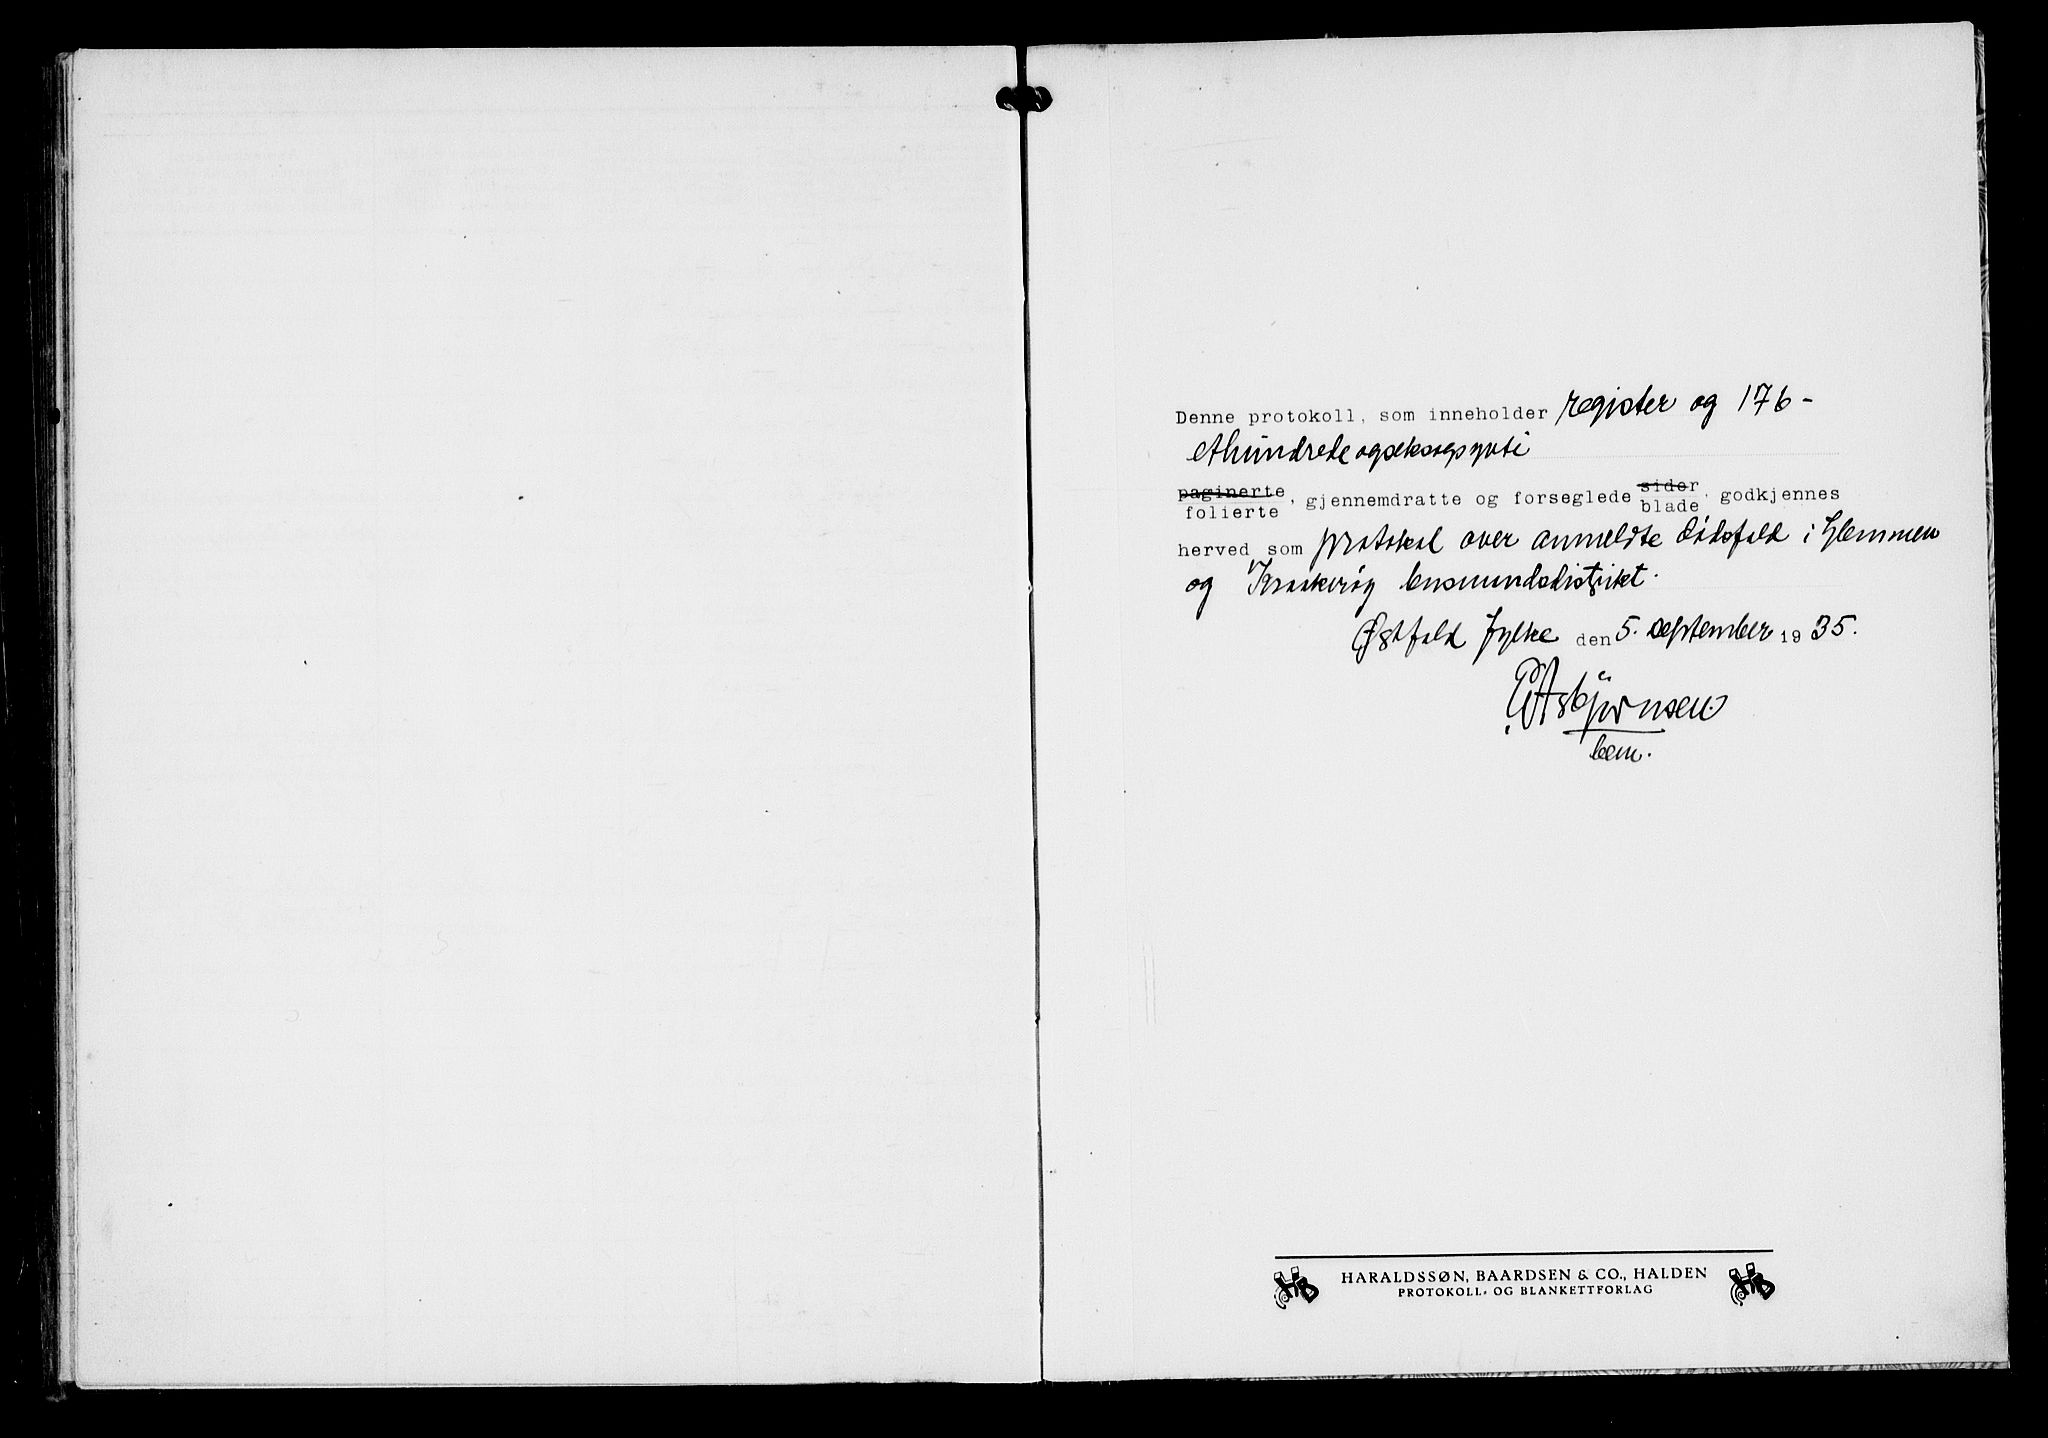 Denne protokoll, som inneholder register og 176 -
ethundredeogseksogsytti
paginerte
folierte, gjennemdratte og forseglede sider
blade, godkjennes
herved som protokol over anmeldte dödsfald i Glemmen
og Kraakeröy lensmandsdistrikt.
Østfold fylke den 5. september 1935.
Asbjørnsen
bem.
HARALDSSØN, BAARDSEN & CO., HALDEN
PROTOKOLL- OG BLANKETTFORLAG